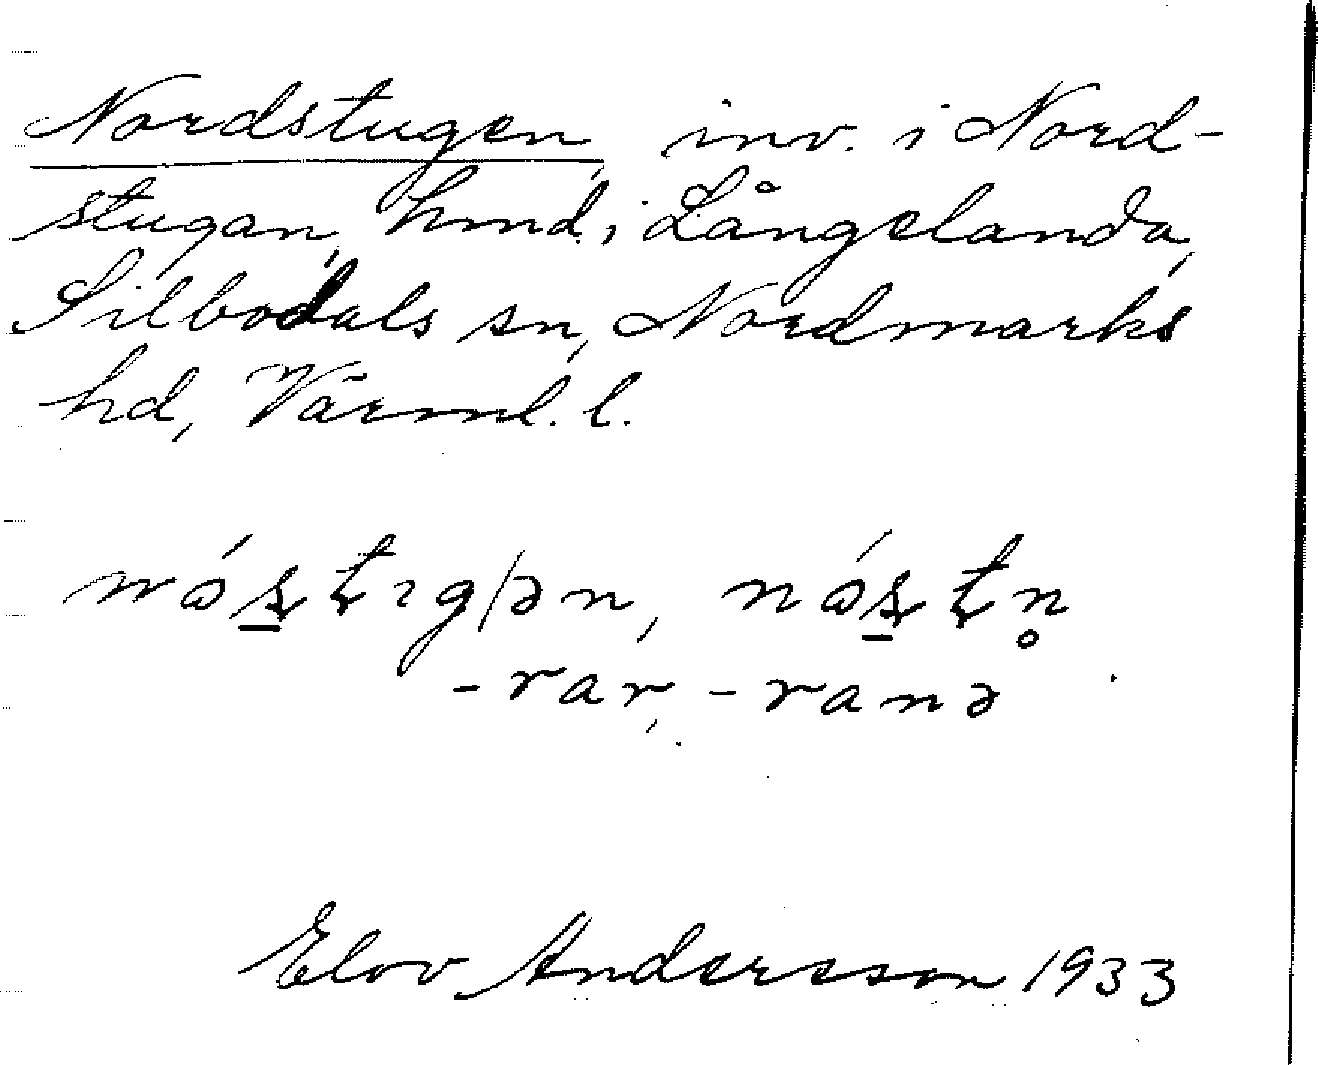 Nordstugen, inv. i Nord-
stugan, hmd, i Långelanda,
Silbodals sn, Nordmarks
hd, Värml. l.
-rar, -ranə
Elov Andersson 1933